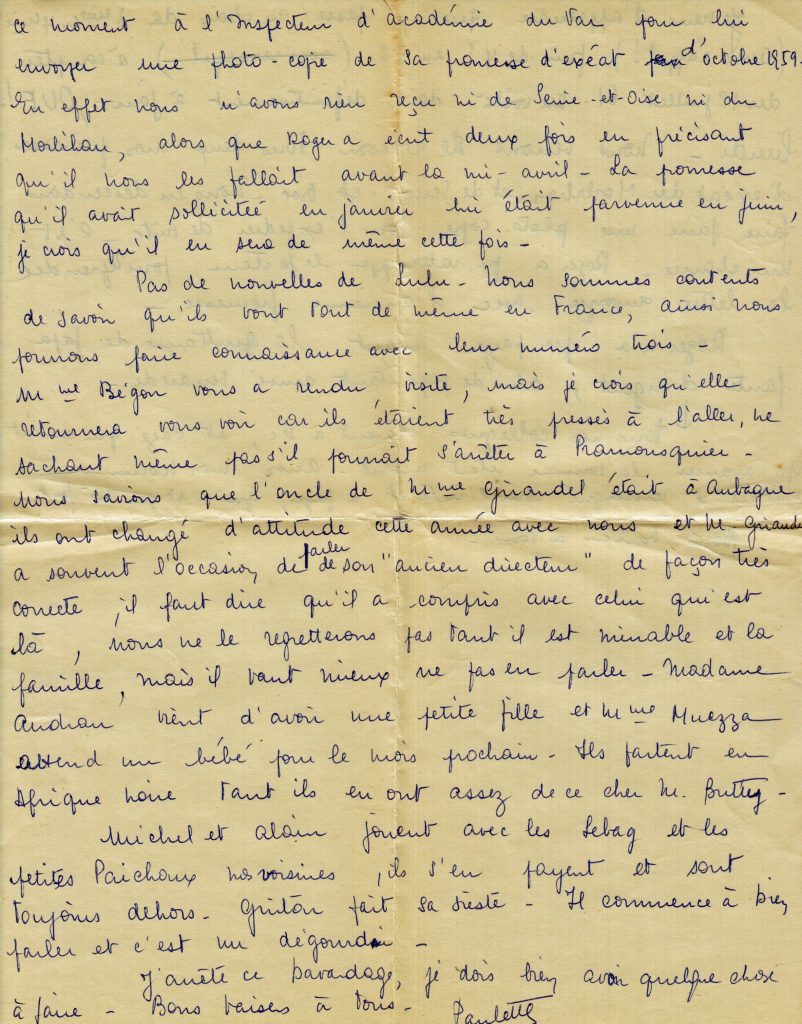 ce moment à l'Inspecteur d'académie du Var pour lui
envoyer une photo-copie de sa promesse d'exéat d'octobre 1959.
En effet nous n'avons rien reçu ni de Seine-et-Oise ni du
Morbihan, alors que Roger a écrit deux fois en précisant
qu'il nous les fallait avant la mi-avril - La promesse
qu'il avait sollicitée en janvier lui était parvenue en juin,
je crois qu'il en sera de même cette fois -
Pas de nouvelles de Lulu - Nous sommes contents
de savoir qu'ils vont tout de même en France, ainsi nous
pourrons faire connaissance avec leur numéro trois -
Mme Bégon vous a rendu visite, mais je crois qu'elle
retournera vous voir car ils étaient très pressés à l'aller, ne
sachant même pas s'il pourrait s'arrêter à Pramousquier -
Nous savions que l'oncle de Mme Giraudel était à Aubagne
ils ont changé d'attitude cette année avec nous et M. Giraudel
a souvent l'occasion de parler de son "ancien directeur" de façon très
correcte, il faut dire qu'il a compris avec celui qui est
là, nous ne le regretterons pas tant il est minable et la
famille, mais il vaut mieux ne pas en parler - Madame
Audran vient d'avoir une petite fille et Mme Muezza
attend un bébé pour le mois prochain - Ils partent en
Afrique noire tant ils en ont assez de ce cher M. Buttey -
Michel et Alain jouent avec les Sebag et les
petites Paichoux nos voisines, ils s'en payent et sont
toujours dehors - Guitou fait sa sieste - Il commence à bien
parler et c'est un dégourdi -
J'arrête ce bavardage, je dois bien avoir quelque chose
à faire - Bons baisers à tous - Paulette